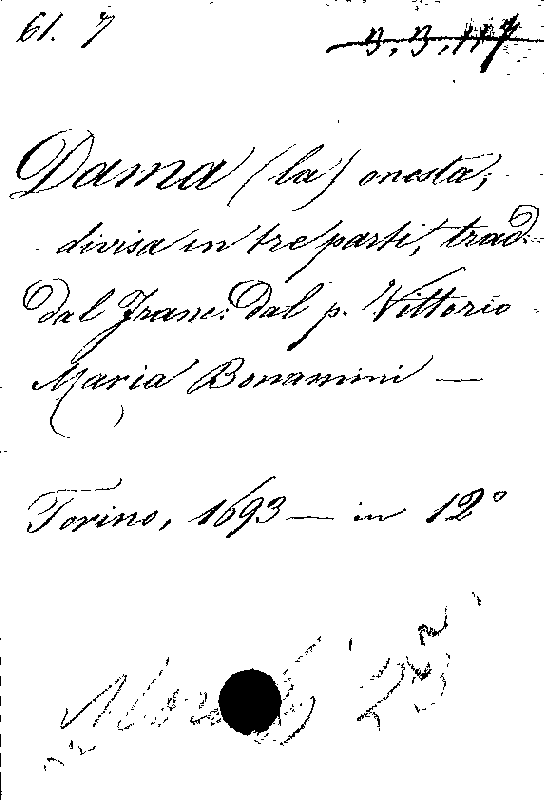 61. 7
3.3.117
Dama (la) onesta,
divisa in tre parti, trad.
dal Franc. dal p. Vittorio
Maria Bonamini —
Torino, 1693 — in 12°
23